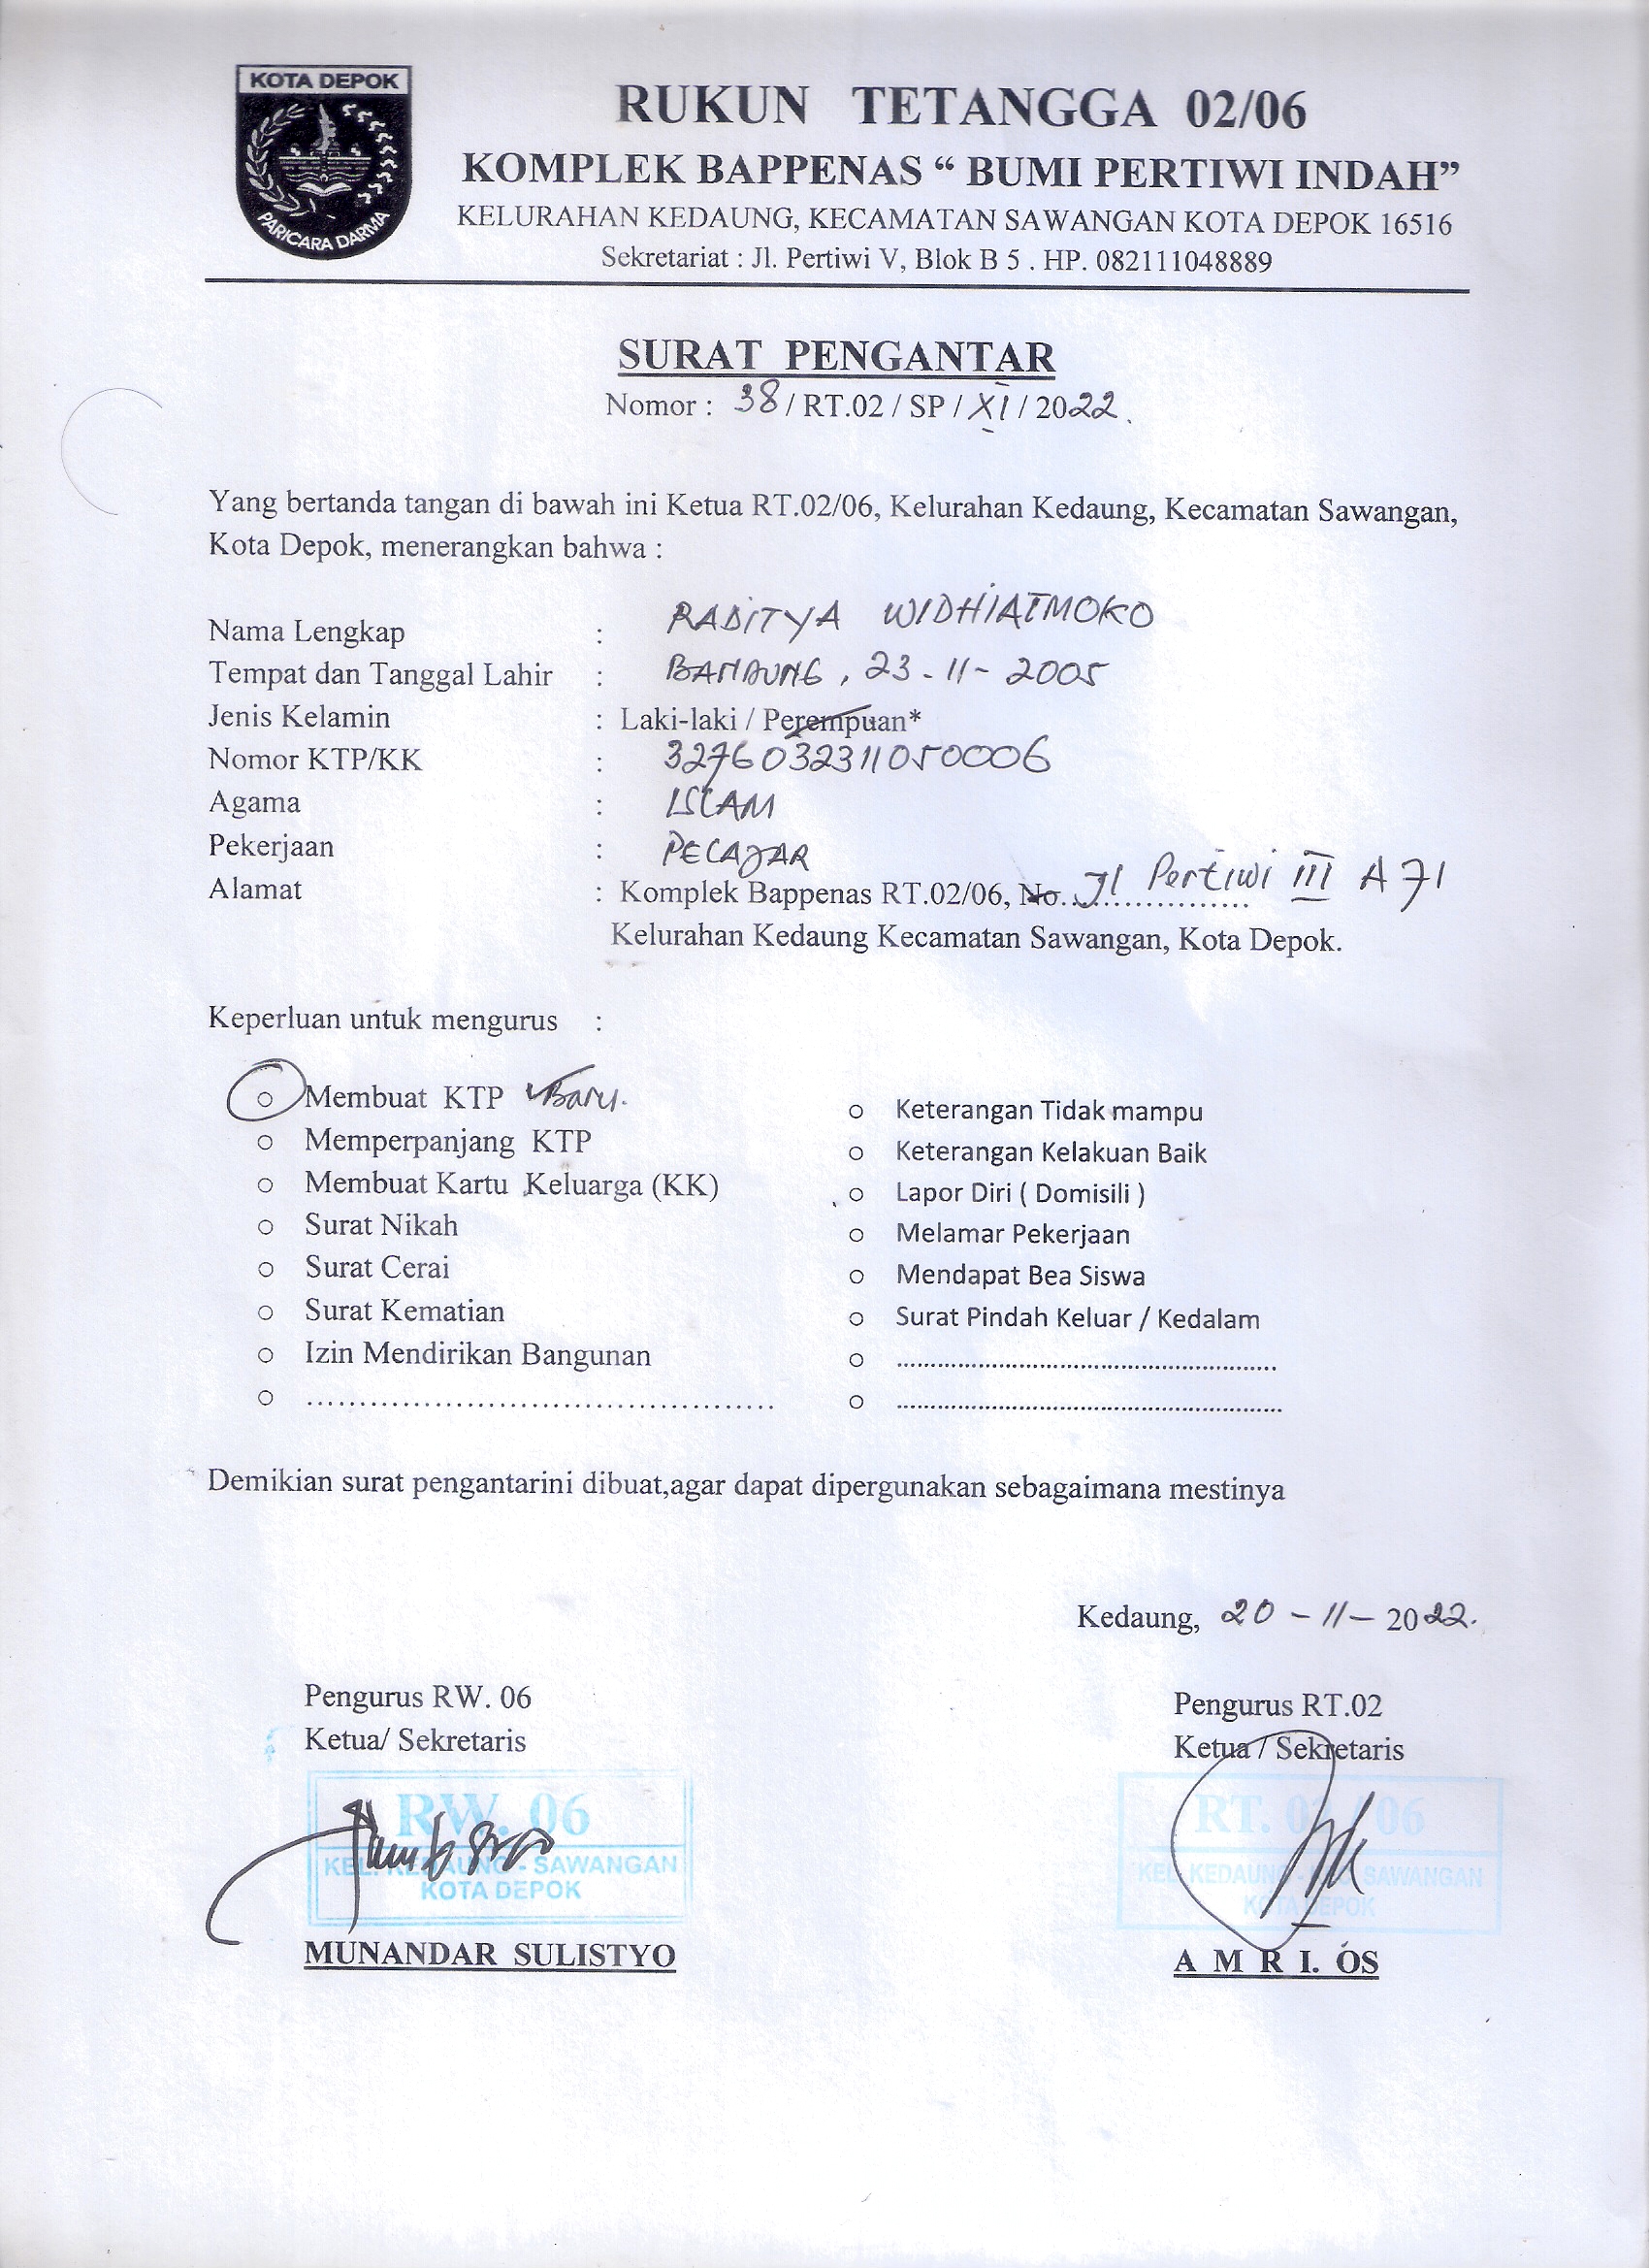 KOTA DEPOK
PARICARA DARMA
RUKUN TETANGGA 02/06
KOMPLEK BAPPENAS “ BUMI PERTIWI INDAH”
KELURAHAN KEDAUNG, KECAMATAN SAWANGAN KOTA DEPOK 16516
Sekretariat : Jl. Pertiwi V, Blok B 5 . HP. 082111048889
SURAT PENGANTAR
Nomor : 38 / RT.02 / SP / XI / 2022.
Yang bertanda tangan di bawah ini Ketua RT.02/06, Kelurahan Kedaung, Kecamatan Sawangan,
Kota Depok, menerangkan bahwa :
Nama Lengkap : RADITYA WIDHIATMOKO
Tempat dan Tanggal Lahir : BANDUNG, 23-11-2005
Jenis Kelamin : Laki-laki / Perempuan*
Nomor KTP/KK : 3276032311050006
Agama : ISLAM
Pekerjaan : PELAJAR
Alamat : Komplek Bappenas RT.02/06, No. Jl Pertiwi III A 71
Kelurahan Kedaung Kecamatan Sawangan, Kota Depok.
Keperluan untuk mengurus :
o Membuat KTP Baru.
o Memperpanjang KTP
o Membuat Kartu Keluarga (KK)
o Surat Nikah
o Surat Cerai
o Surat Kematian
o Izin Mendirikan Bangunan
o ............................................
o Keterangan Tidak mampu
o Keterangan Kelakuan Baik
o Lapor Diri ( Domisili )
o Melamar Pekerjaan
o Mendapat Bea Siswa
o Surat Pindah Keluar / Kedalam
o ............................................
o ............................................
Demikian surat pengantarini dibuat,agar dapat dipergunakan sebagaimana mestinya
Kedaung, 20 - 11 - 2022.
Pengurus RW. 06
Ketua/ Sekretaris
RW. 06
KEL. KEDAUNG - SAWANGAN
KOTA DEPOK
MUNANDAR SULISTYO
Pengurus RT.02
Ketua / Sekretaris
RT. 02/06
KEL. KEDAUNG - KEC. SAWANGAN
KOTA DEPOK
A M R I. OS